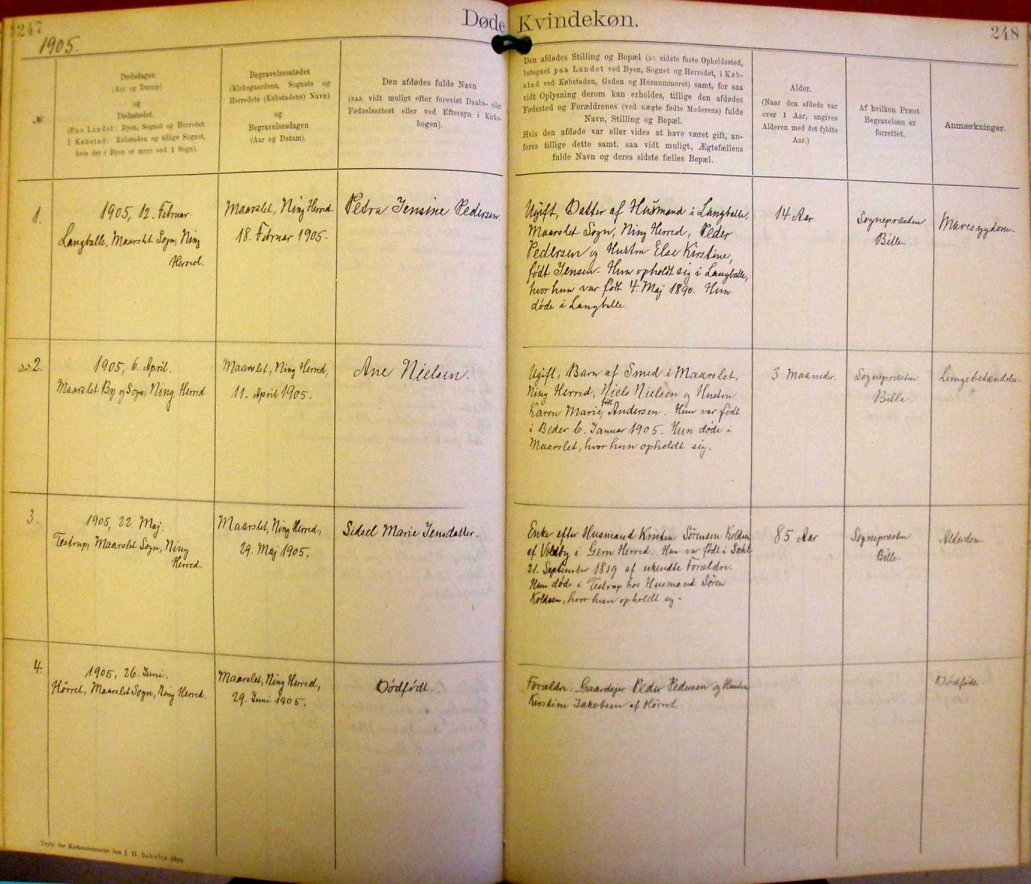 247
Døde Kvindekøn.
248
1905.
№
Dødsdagen
(Aar og Datum)
og
Dødsstedet.
(Paa Landet: Byen, Sognet og Herredet.
I Købstad: Købstaden og tillige Sognet,
hvis der i Byen er mere end 1 Sogn).
Begravelsesstedet
(Kirkegaardens, Sognets og
Herredets (Købstadens) Navn)
og
Begravelsesdagen
(Aar og Datum).
Den afdødes fulde Navn
(saa vidt muligt efter forevist Daabs- eller
Fødselsattest eller ved Eftersyn i Kirke-
bogen).
Den afdødes Stilling og Bopæl (ɔ: sidste faste Opholdssted,
betegnet paa Landet ved Byen, Sognet og Herredet, i Køb-
stad ved Købstaden, Gaden og Husnummeret) samt, for saa
vidt Oplysning derom kan erholdes, tillige den afdødes
Fødested og Forældrenes (ved uægte fødte Moderens) fulde
Navn, Stilling og Bopæl.
Hvis den afdøde var eller vides at have været gift, an-
føres tillige dette samt, saa vidt muligt, Ægtefællens
fulde Navn og deres sidste fælles Bopæl.
Alder.
(Naar den afdøde var
over 1 Aar, angives
Alderen med det fyldte
Aar.)
Af hvilken Præst
Begravelsen er
forrettet.
Anmærkninger.
1.
1905, 12. Februar
Langballe, Maarslet Sogn, Ning
Herred.
Maarslet, Ning Herred.
18. Februar 1905.
Petra Jensine Pedersen
Ugift, Datter af Husmand i Langballe,
Maarslet Sogn, Ning Herred, Peder
Pedersen og Hustru Else Kirstine,
født Jensen. Hun opholdt sig i Langballe,
hvor hun var født 4 Maj 1890. Hun
døde i Langballe.
14 Aar
Sognepræsten
Bille
Mavesygdom.
2.
1905, 6. April.
Maarslet By og Sogn, Ning Herred
Maarslet, Ning Herred,
11. April 1905.
Ane Nielsen.
Ugift, Barn af Smed i Maarslet,
Ning Herred, Niels Nielsen og Hustru
Karen Marie født Andersen. Hun var født
i Beder 6. Januar 1905. Hun døde i
Maarslet, hvor hun opholdt sig.
3 Maaneder
Sognepræsten
Bille
Lungebetændelse
3.
1905, 22. Maj.
Testrup, Maarslet Sogn, Ning
Herred.
Maarslet, Ning Herred,
29. Maj 1905.
Sidsel Marie Jensdatter.
Enke efter Husmand Kristen Sørensen Koldsen
af Voldby i Gern Herred. Hun var født i
21. September 1819 af ukendte Forældre.
Hun døde i Testrup hos Husmand Søren
Koldsen, hvor hun opholdt sig.
85 Aar
Sognepræsten
Bille
Alderdom.
4.
1905, 26. Juni.
Hørret, Maarslet Sogn, Ning Herred.
Maarslet, Ning Herred,
29. Juni 1905.
Dødfødt.
Forældre: Gaardejer Peder Pedersen og Hustru
Kirstine Jakobsen af Hørret.
Dødfødt
Trykt for Kirkeministeriet hos J. H. Schultz